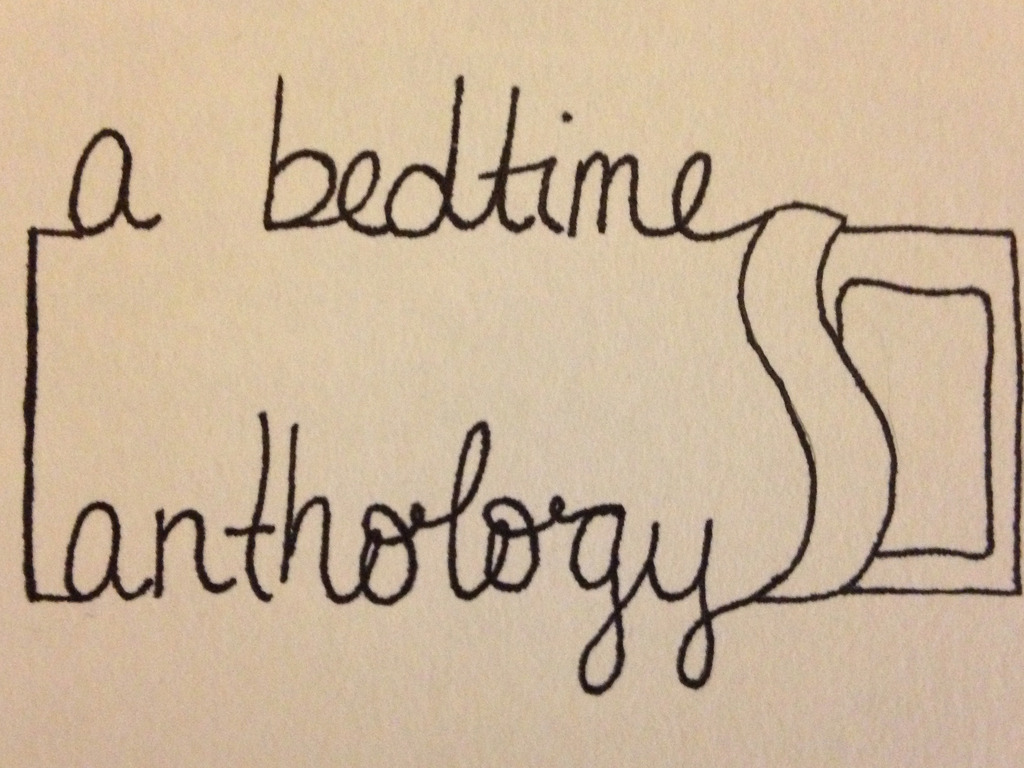 a bedtime
anthology